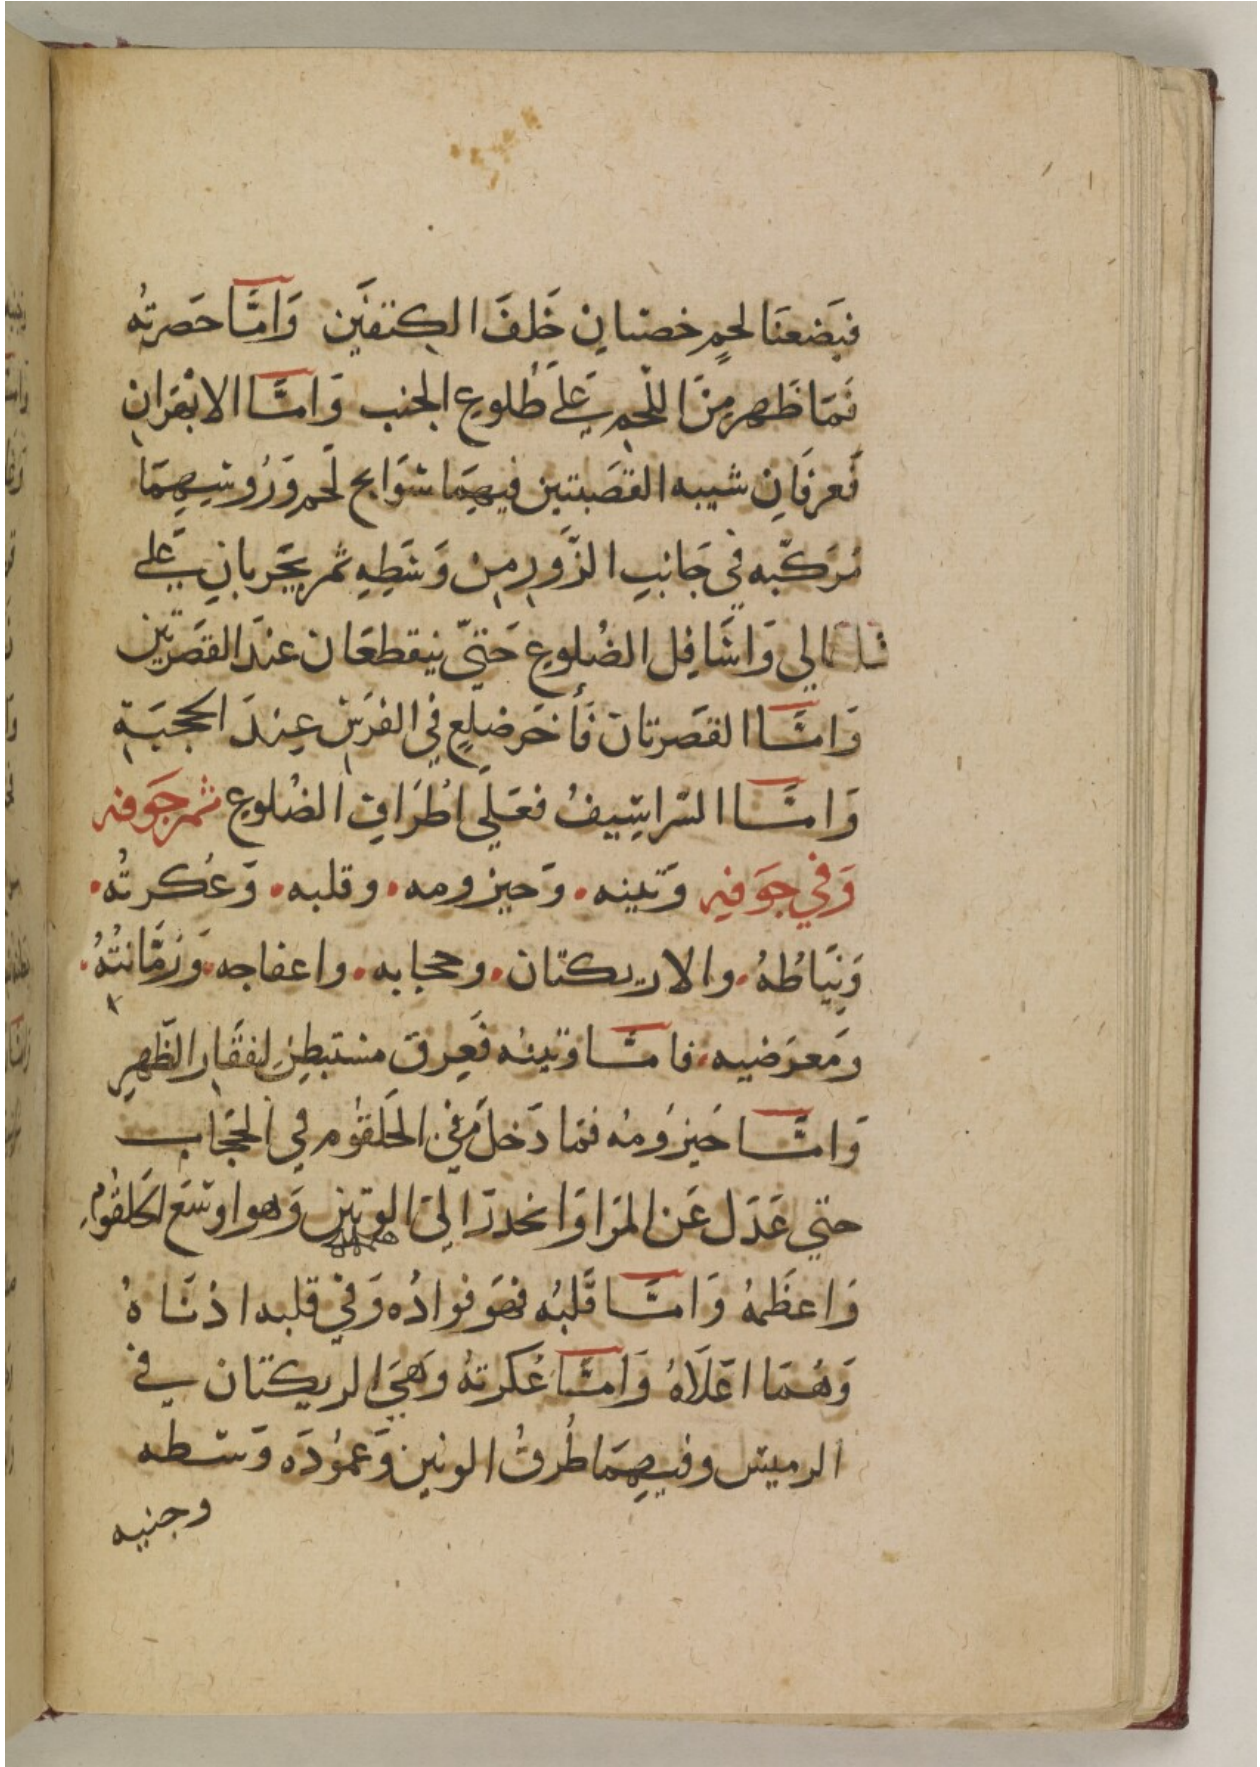 فبَضعنَا لحمٍ خصنبان خَلفَ الكتفَين وَامَّا حَصرتهُ
فمَا ظَهر مِنَ اللّحمِ عَلى ضُلوع الجنب وَامَّا الابْهَران
فَعرقَانِ شبيه القصَبتين فيهِمَا شوَابح لَحم وَرُوسِهِمَا
مُرَكّبه في جَانبِ الزَّورِ مِن وَسَطِهِ ثم يَجربانِ عَلى
وَاسَافِل الضُلوعِ حَتيّ ينقطعَان عندَ القصَرتين
وَامَّا القصَرتان فَأخَر ضلعٍ في الفرَسِ عِندَ الحجبَةِ
وَامَّا الشراسِيفُ فعَلَي اطرَافِ الضُلوع ثمر جَوفه
وَفي جوَفهِ وَتينه. وَحيزومه. وقلبه. وَعُكرتُه.
وَنيَاطهُ. والاريكتان. وحجابه. واعفاجه. وَرُمَّانتُهُ.
ومَعرَضيه. فامَّا وتينه فَعِرق مستبطِنِ لفقَارِ الظَّهرِ
وَامَّا حَيزوُمهُ فمَا دَخلَ مِنَ الحَلقوُم في الحجَابِ
حتي عَدَل عَن المرَا وَانحدرَ اليَ الوتين وَهوا وسَع الحَلقوُمِ
وَاعظَمهُ وَامَّا قَلبُه فهَو فوادُه وَفي قلبه اذنَاهُ
وَهُمَا اعَلَاهُ وَامَّا عُكرتهُ وَهيَ الريكتان في
الرميس وفيهِمَا طُرقُ الوتين وَعموُدَه وَسَطه
وجنبيه